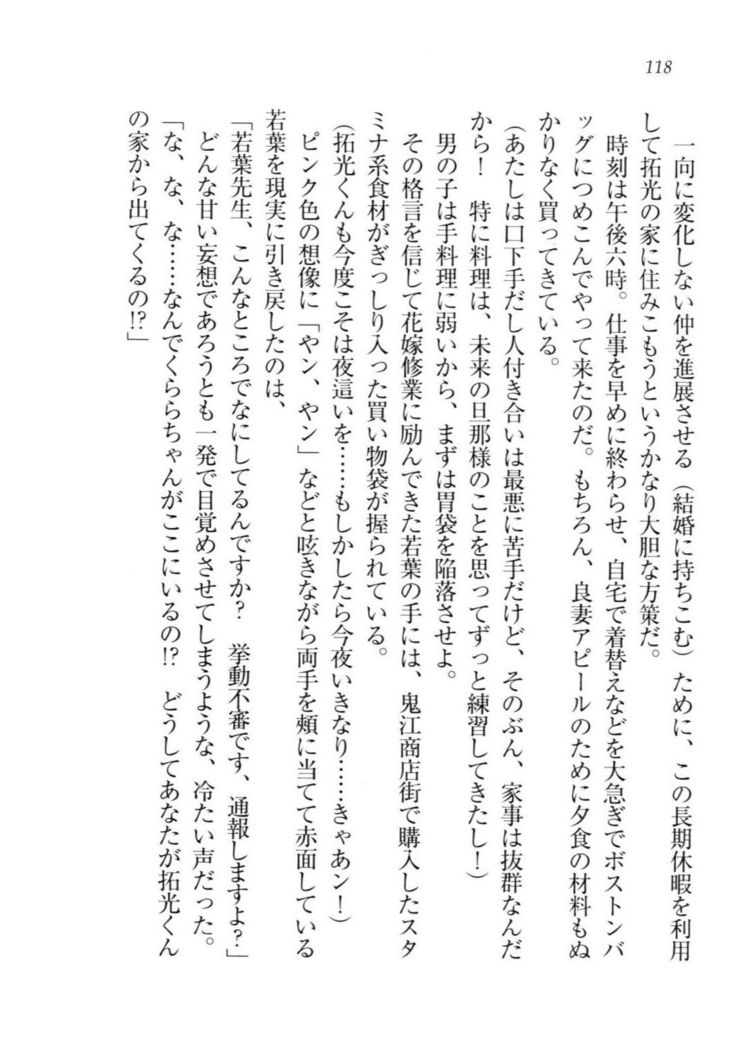 118
一向に変化しない仲を進展させる（結婚に持ちこむ）ために、この長期休暇を利用
して拓光の家に住みこもうというかなり大胆な方策だ。
時刻は午後六時。仕事を早めに終わらせ、自宅で着替えなどを大急ぎでボストンバ
ッグにつめこんでやって来たのだ。もちろん、良妻アピールのために夕食の材料もぬ
かりなく買ってきている。
（あたしは口下手だし人付き合いは最悪に苦手だけど、そのぶん、家事は抜群なんだ
から！　特に料理は、未来の旦那様のことを思ってずっと練習してきたし！）
男の子は手料理に弱いから、まずは胃袋を陥落させよ。
その格言を信じて花嫁修業に励んできた若葉の手には、鬼江商店街で購入したスタ
ミナ系食材がぎっしり入った買い物袋が握られている。
（拓光くんも今度こそは夜這いを……もしかしたら今夜いきなり……きゃあン！）
ピンク色の想像に「やン、やン」などと呟きながら両手を頰に当てて赤面している
若葉を現実に引き戻したのは、
「若葉先生、こんなところでなにしてるんですか？　挙動不審です、通報しますよ？」
どんな甘い妄想であろうとも一発で目覚めさせてしまうような、冷たい声だった。
「な、な、な……なんでくららちゃんがここにいるの!?　どうしてあなたが拓光くん
の家から出てくるの!?」